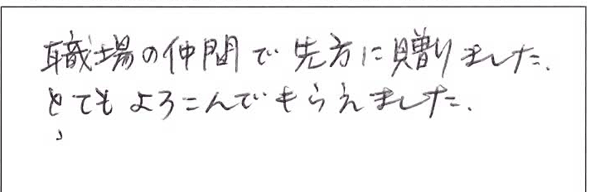 職場の仲間で先方に贈りました.
とてもよろこんでもらえました.